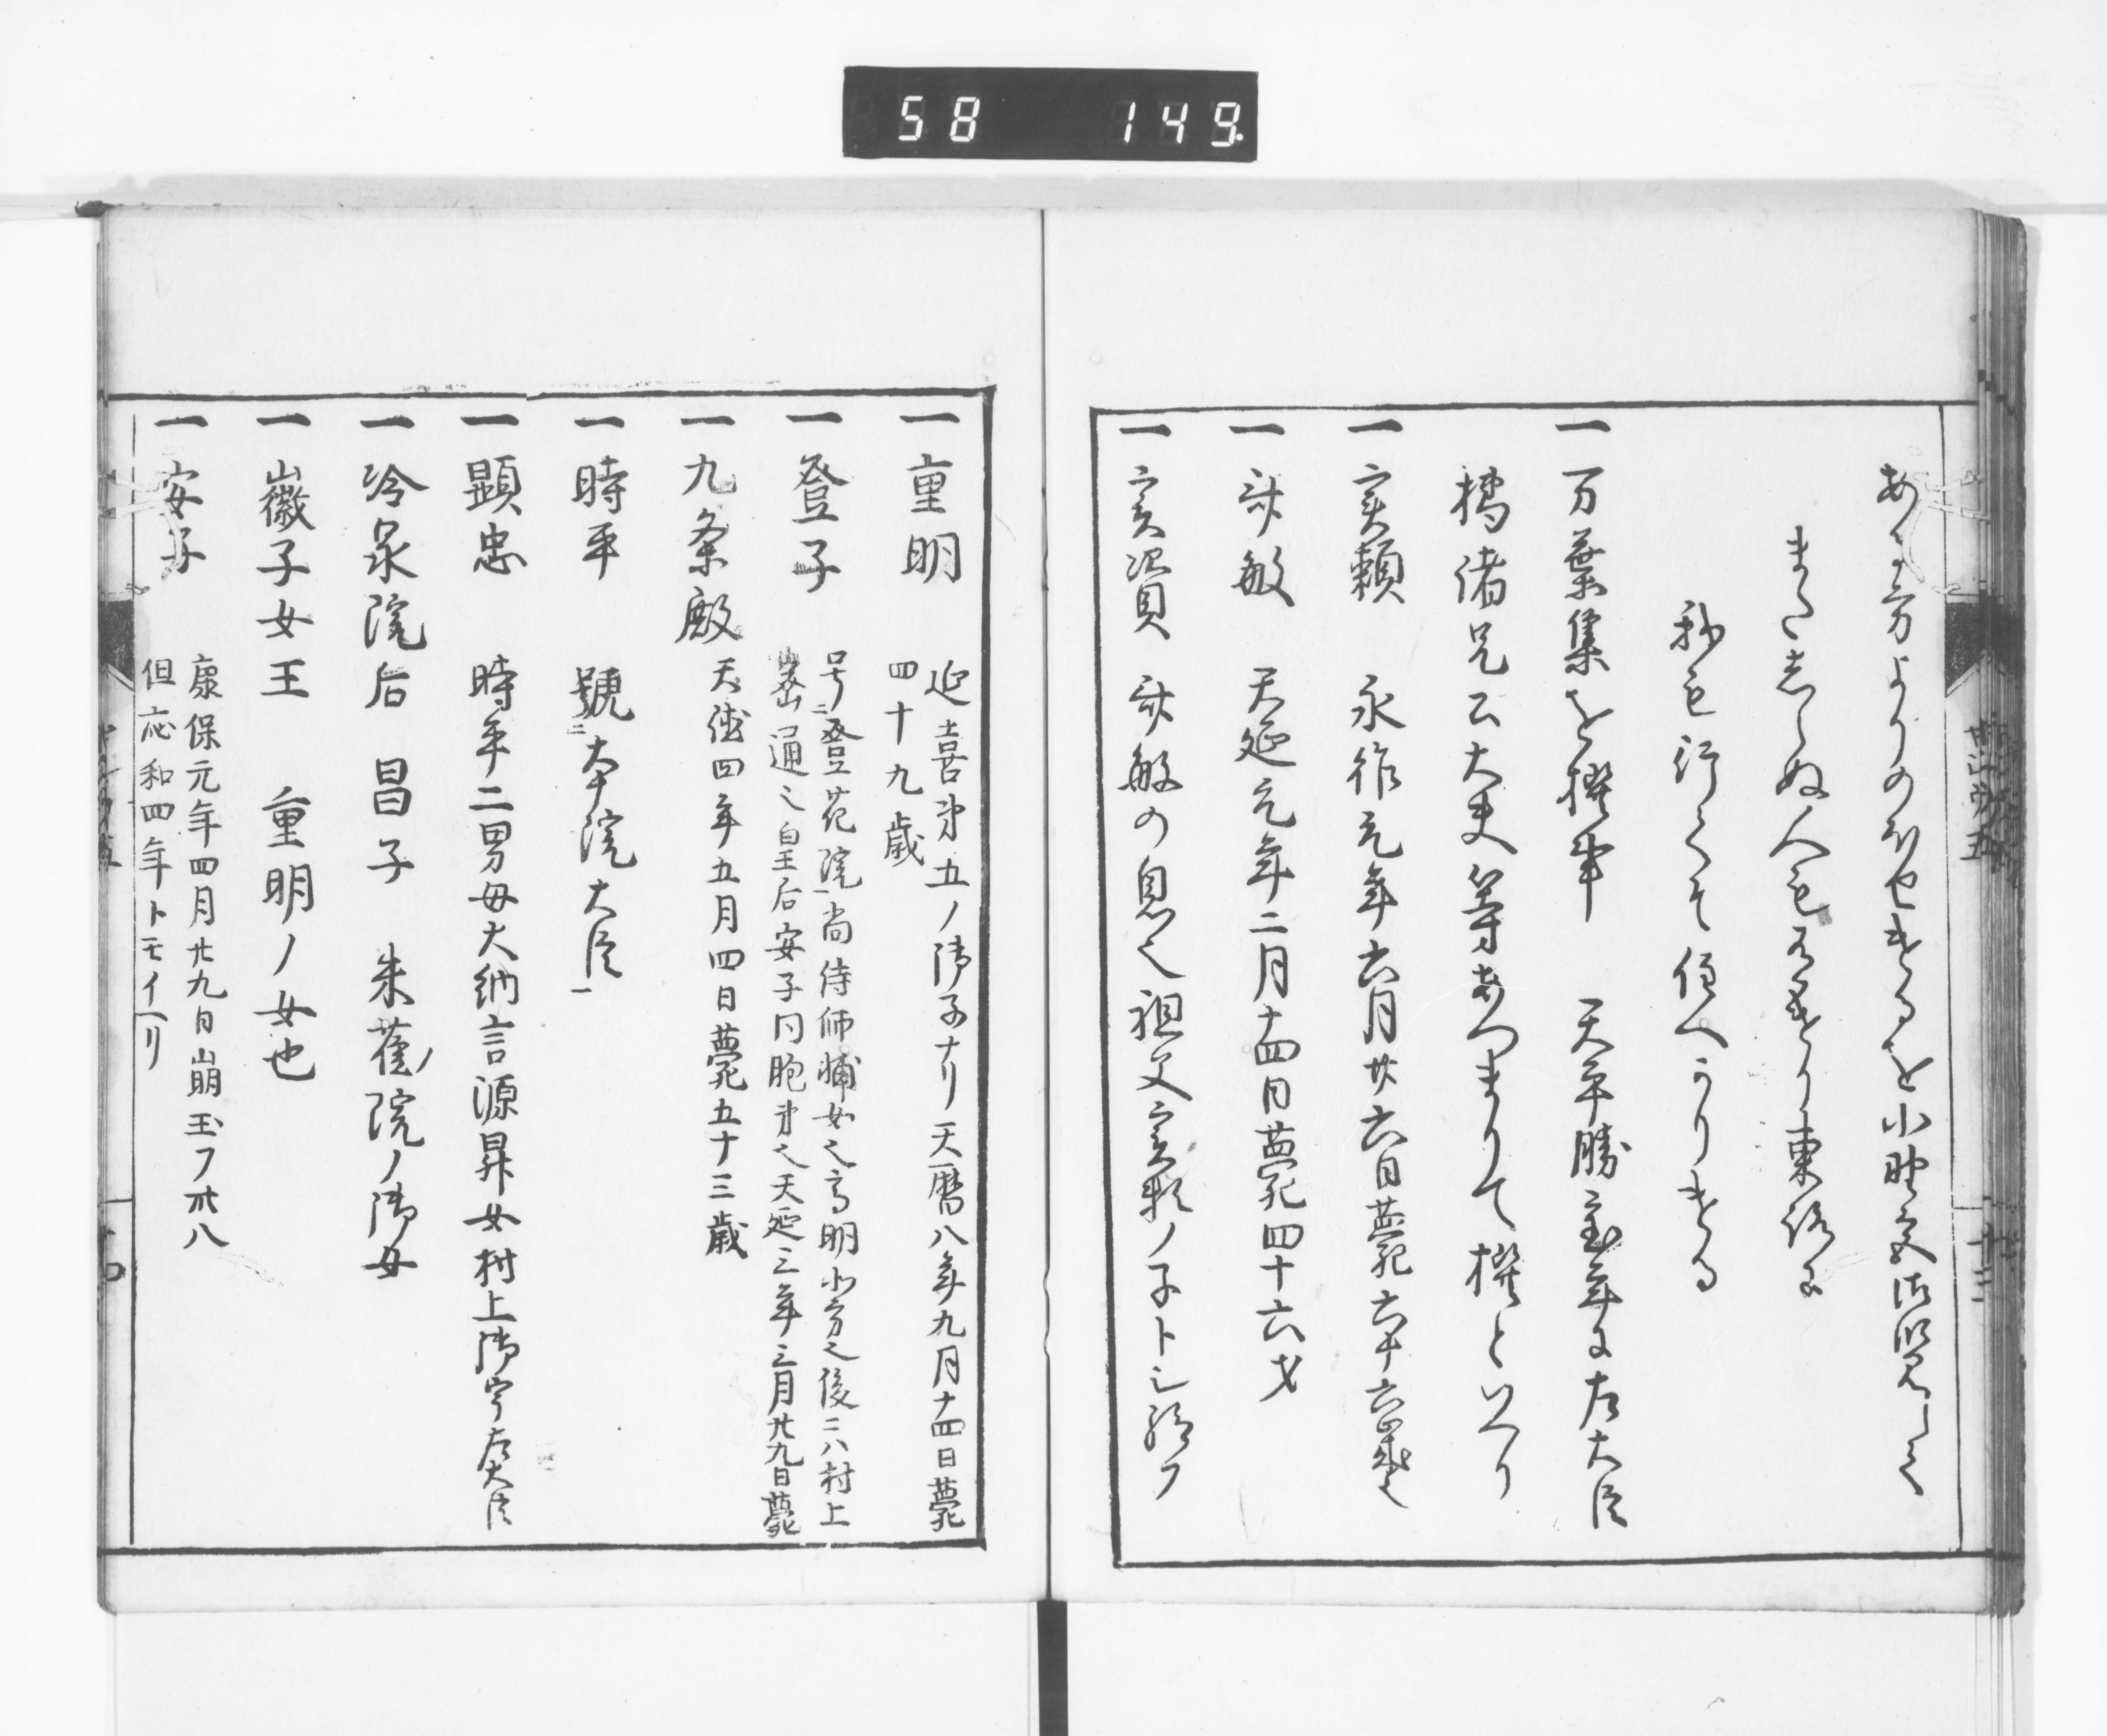 58 149
まだしらぬ人も有けり東路に
我も行てそ住へかりける
一 万葉集を撰事 天平勝宝年に左大臣
橘諸兄公大夫等あつまりて撰といへり
一 実頼 永祚元年六月廿六日薨六十六歳也
一 斉敏 天延元年二月十四日薨四十六才
一 実資 斉敏の息也祖父実頼ノ子トシ給フ
一 重明 延喜第五ノ御子ナリ天暦八年九月十四日薨
四十九歳
一 登子 号二登花院一尚侍師輔女也高明北方也後ニハ村上
密通也皇后安子同胞弟也天延三年三月廿九日薨
一 九条殿 天徳四年五月四日薨五十三歳
一 時平 號二本院大臣一
一 顕忠 時平二男母大納言源昇女村上御宇左大臣
一 冷泉院后 昌子 朱雀院ノ御女
一 徽子女王 重明ノ女也
一 安子 康保元年四月廿九日崩玉フ卅八
但応和四年トモイヘリ